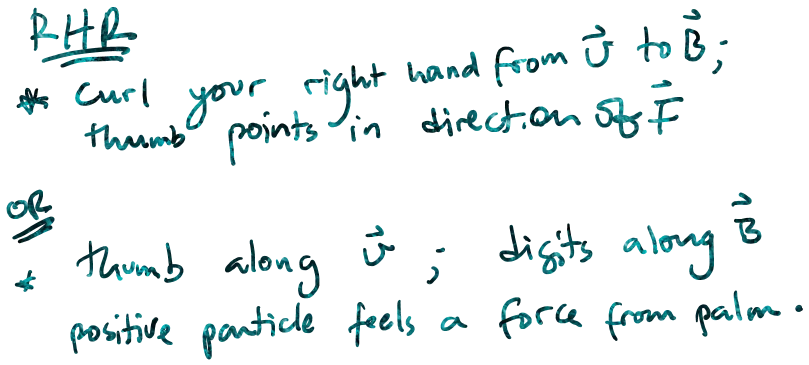 RHR
* Curl your right hand from v⃗ to B⃗;
thumb points in direction of F⃗
OR
* thumb along v⃗ ; digits along B⃗
positive particle feels a force from palm.